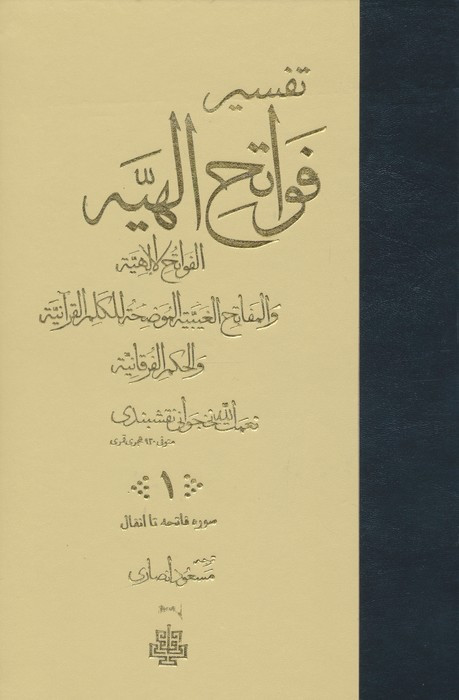 تفسیر
فواتح الهیّه
الفواتح الإلهیّة
والمفاتح الغیبیّة الموضحة للكلم القرآنیّة
والحكم الفرقانیّة
نعمت الله نخجوانی نقشبندی
متوفی ۹۲۰ هجری قمری
۱
سوره فاتحه تا انفال
ترجمه
مسعود انصاری